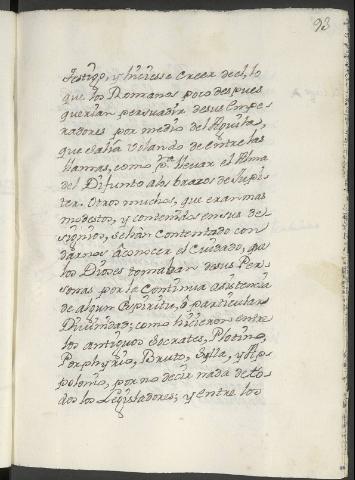 93
Testigo, y hiciesse creer de el, lo
que los Romanos poco despues
querian persuadir de sus Empe-
radores por medio del Aguila,
que salia volando de entre las
llamas, como p.ª llevar el Alma
del Difunto a los brazos de Jupi-
ter. Otros muchos, que eran mas
modestos, y contenidos en sus de-
signios, se han contentado con
darnos â conocer el Cuidado, que
los Dioses tomaban de sus Per-
sonas por la Continua asistencia
de algun Espiritu, ô particular
Divinidad; como hicieron entre
los antiguos Socrates, Plotino,
Porphyrio, Bruto, Sylla, y Ap-
polonio, por no decir nada de to-
dos los Legisladores; y entre los